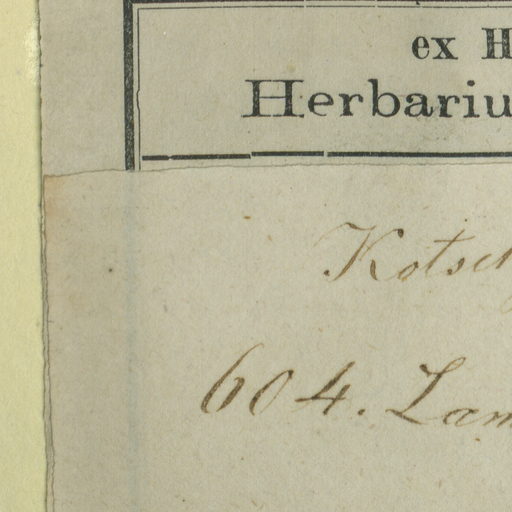 ex H
Herbariu
Kotsch
604. Lam